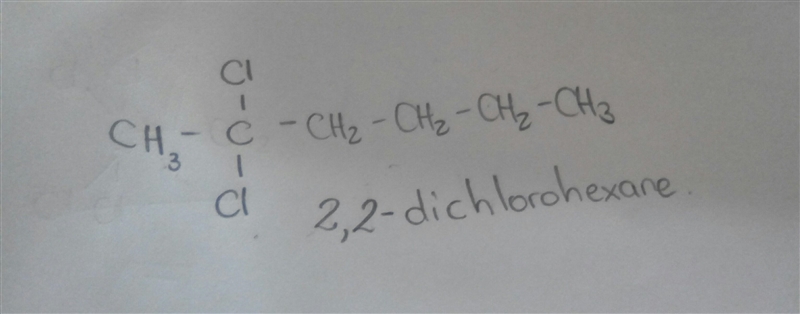 Cl
CH3 - C - CH2 - CH2 - CH2 - CH3
Cl
2,2-dichlorohexane.